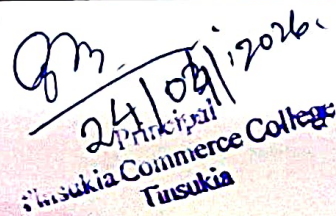 24/04/2026.
Principal
Tinsukia Commerce College
Tinsukia